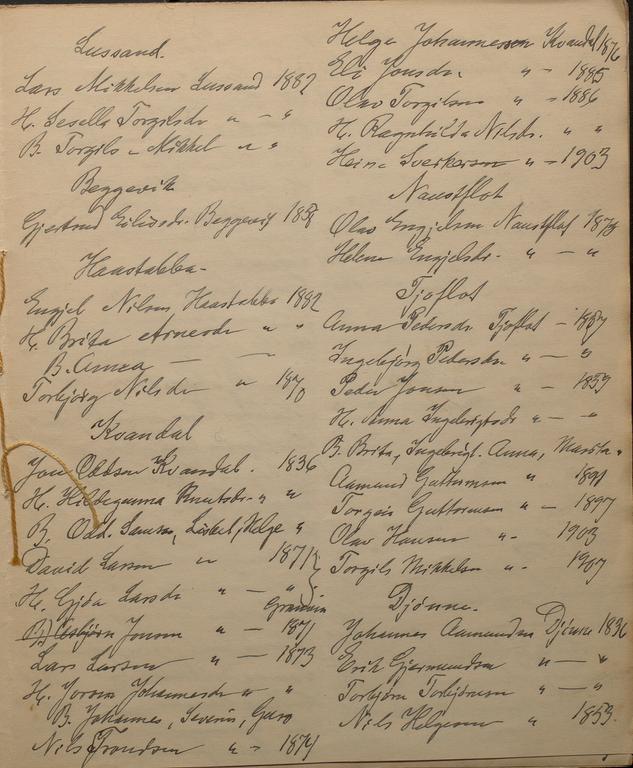 Lussand.
Lars Mikkelsen Lussand 1887
H. Sesella Torgilsdr " - "
B. Torgils - Mikkel " "
Beggevik
Gjertrud Eilivsdr. Beggevik 1858
Haastabba.
Engjel Nilsen Haastabba 1882
H. Brita Arnesdr " "
B. Anna — —
Torbjørg Nilsdr " 1870
Kvandal
Jon Oddsen Kvandal. 1836
H. Hildegunna Knutsdr. " "
B. Odd. Samson, Liskel, Helge "
David Larsen " 1871
H. Gjøa Larsdr " - "
Gravin
B) Asbjørn Jonson " — 1871
Lars Larsen " — 1873
H. Joron Johannesdr " "
B. Johannes, Severin, Guro
Nils Trondsen " - 1874
Helge Johannesson Kvandal 1876
Eli Jonsdr. " - 1885
Olav Torgilsen " - 1886
H. Ragnhilda Nilsdr. " "
Heine Sverkerson " - 1903
Naustflot
Olav Engjelsen Naustflot 1875
Helene Engjelsdr. " — "
Tjoflot
Anna Pedersdr Tjoflot — 1857
Ingebjørg Pedersdr " — "
Peder Jonsen " — 1859
H. Anna Ingebrigtsdr " — "
B. Brita, Ingebrigt. Anna, Marita "
Aamund Guttormson " 1891
Torgeis Guttormson " - 1897
Olav Hansen " - 1903
Torgils Mikkelsen " - 1907
Djønne.
Johannes Aamundsen Djønne 1836
Erik Gjermundsen " — "
Torbjørn Torbjørnsen " — "
Nils Helgesen " 1853.